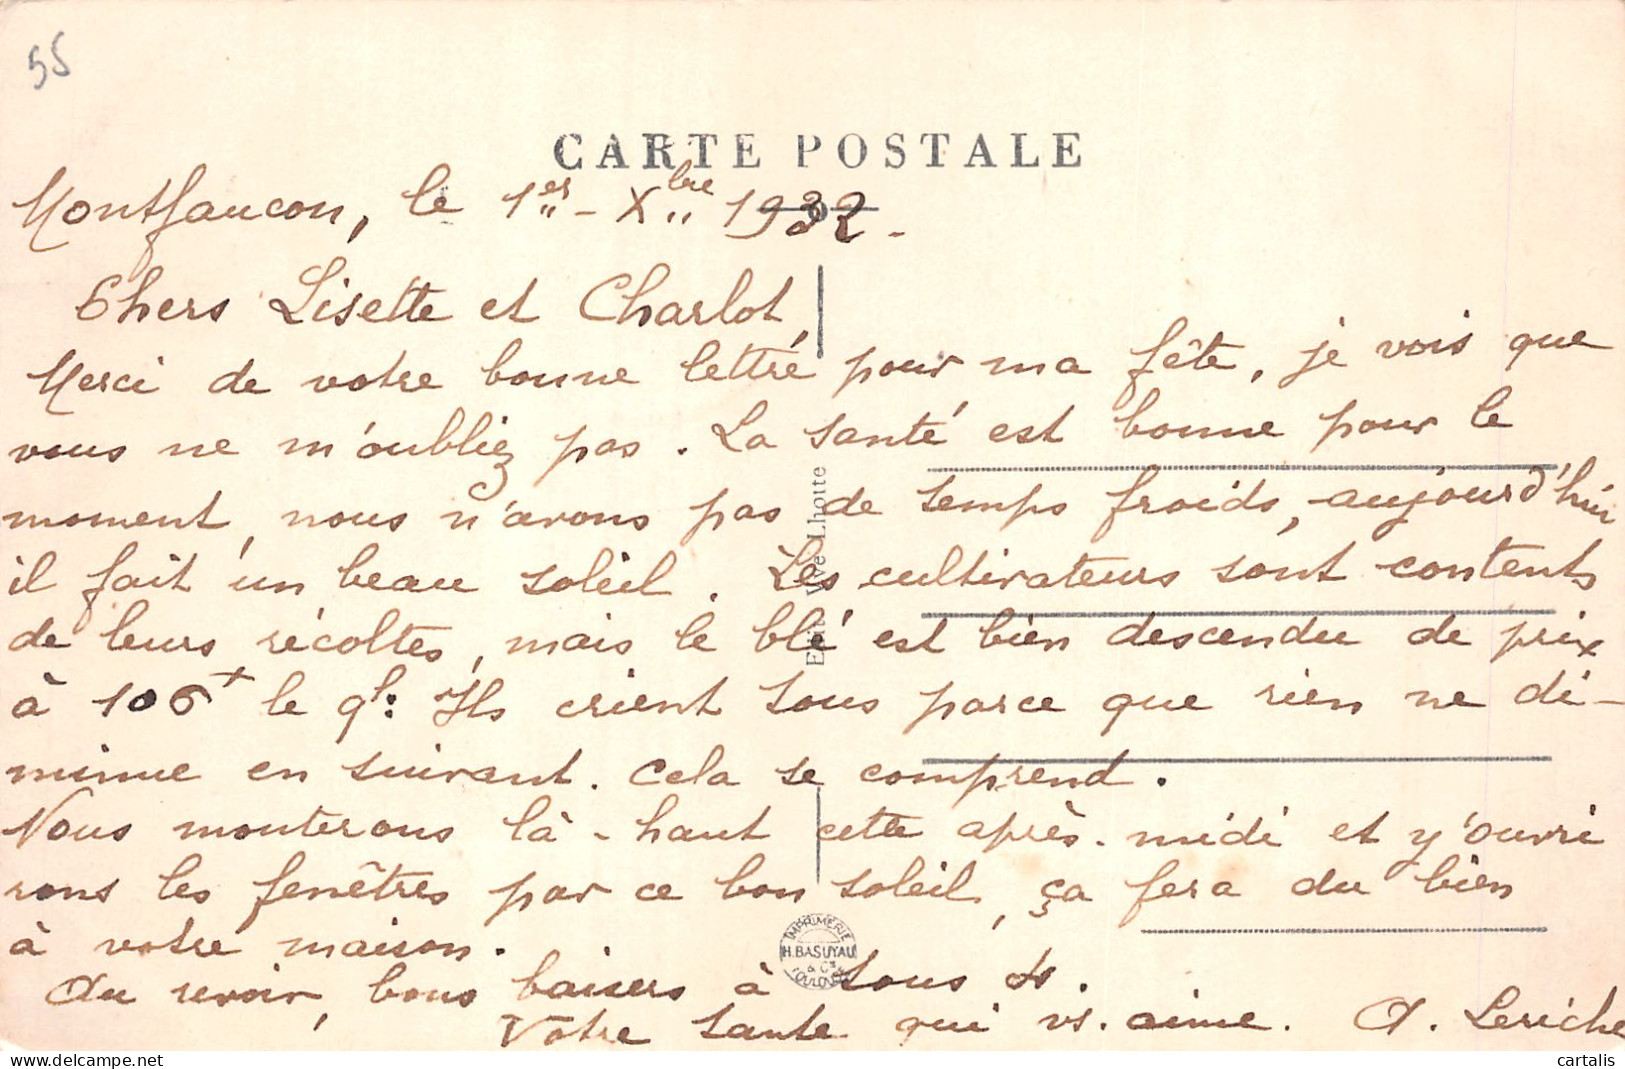 55
CARTE POSTALE
Montfaucon, le 1er - Xbre 1932.
Chers Lisette et Charlot,
Merci de votre bonne lettre pour ma fête, je vois que
vous ne m'oubliez pas. La santé est bonne pour le
moment, nous n'avons pas de temps froids, aujourd'hui
il fait un beau soleil. Les cultivateurs sont contents
de leurs récoltes, mais le blé est bien descendu de prix
à 106+ le ql: Ils crient tous parce que rien ne di-
minue en suivant. Cela se comprend.
Nous monterons là-haut cette après-midi et y'ouvri
rons les fenêtres par ce bon soleil, ça fera du bien
à votre maison.
Au revoir, bons baisers à tous
Votre tante qui vs. aime. A. Leriche
Edit. Vve Lhoite
IMPRIMERIE
H. BASUYAU
& Cie
TOULOUSE
cartalis
delcampe.net